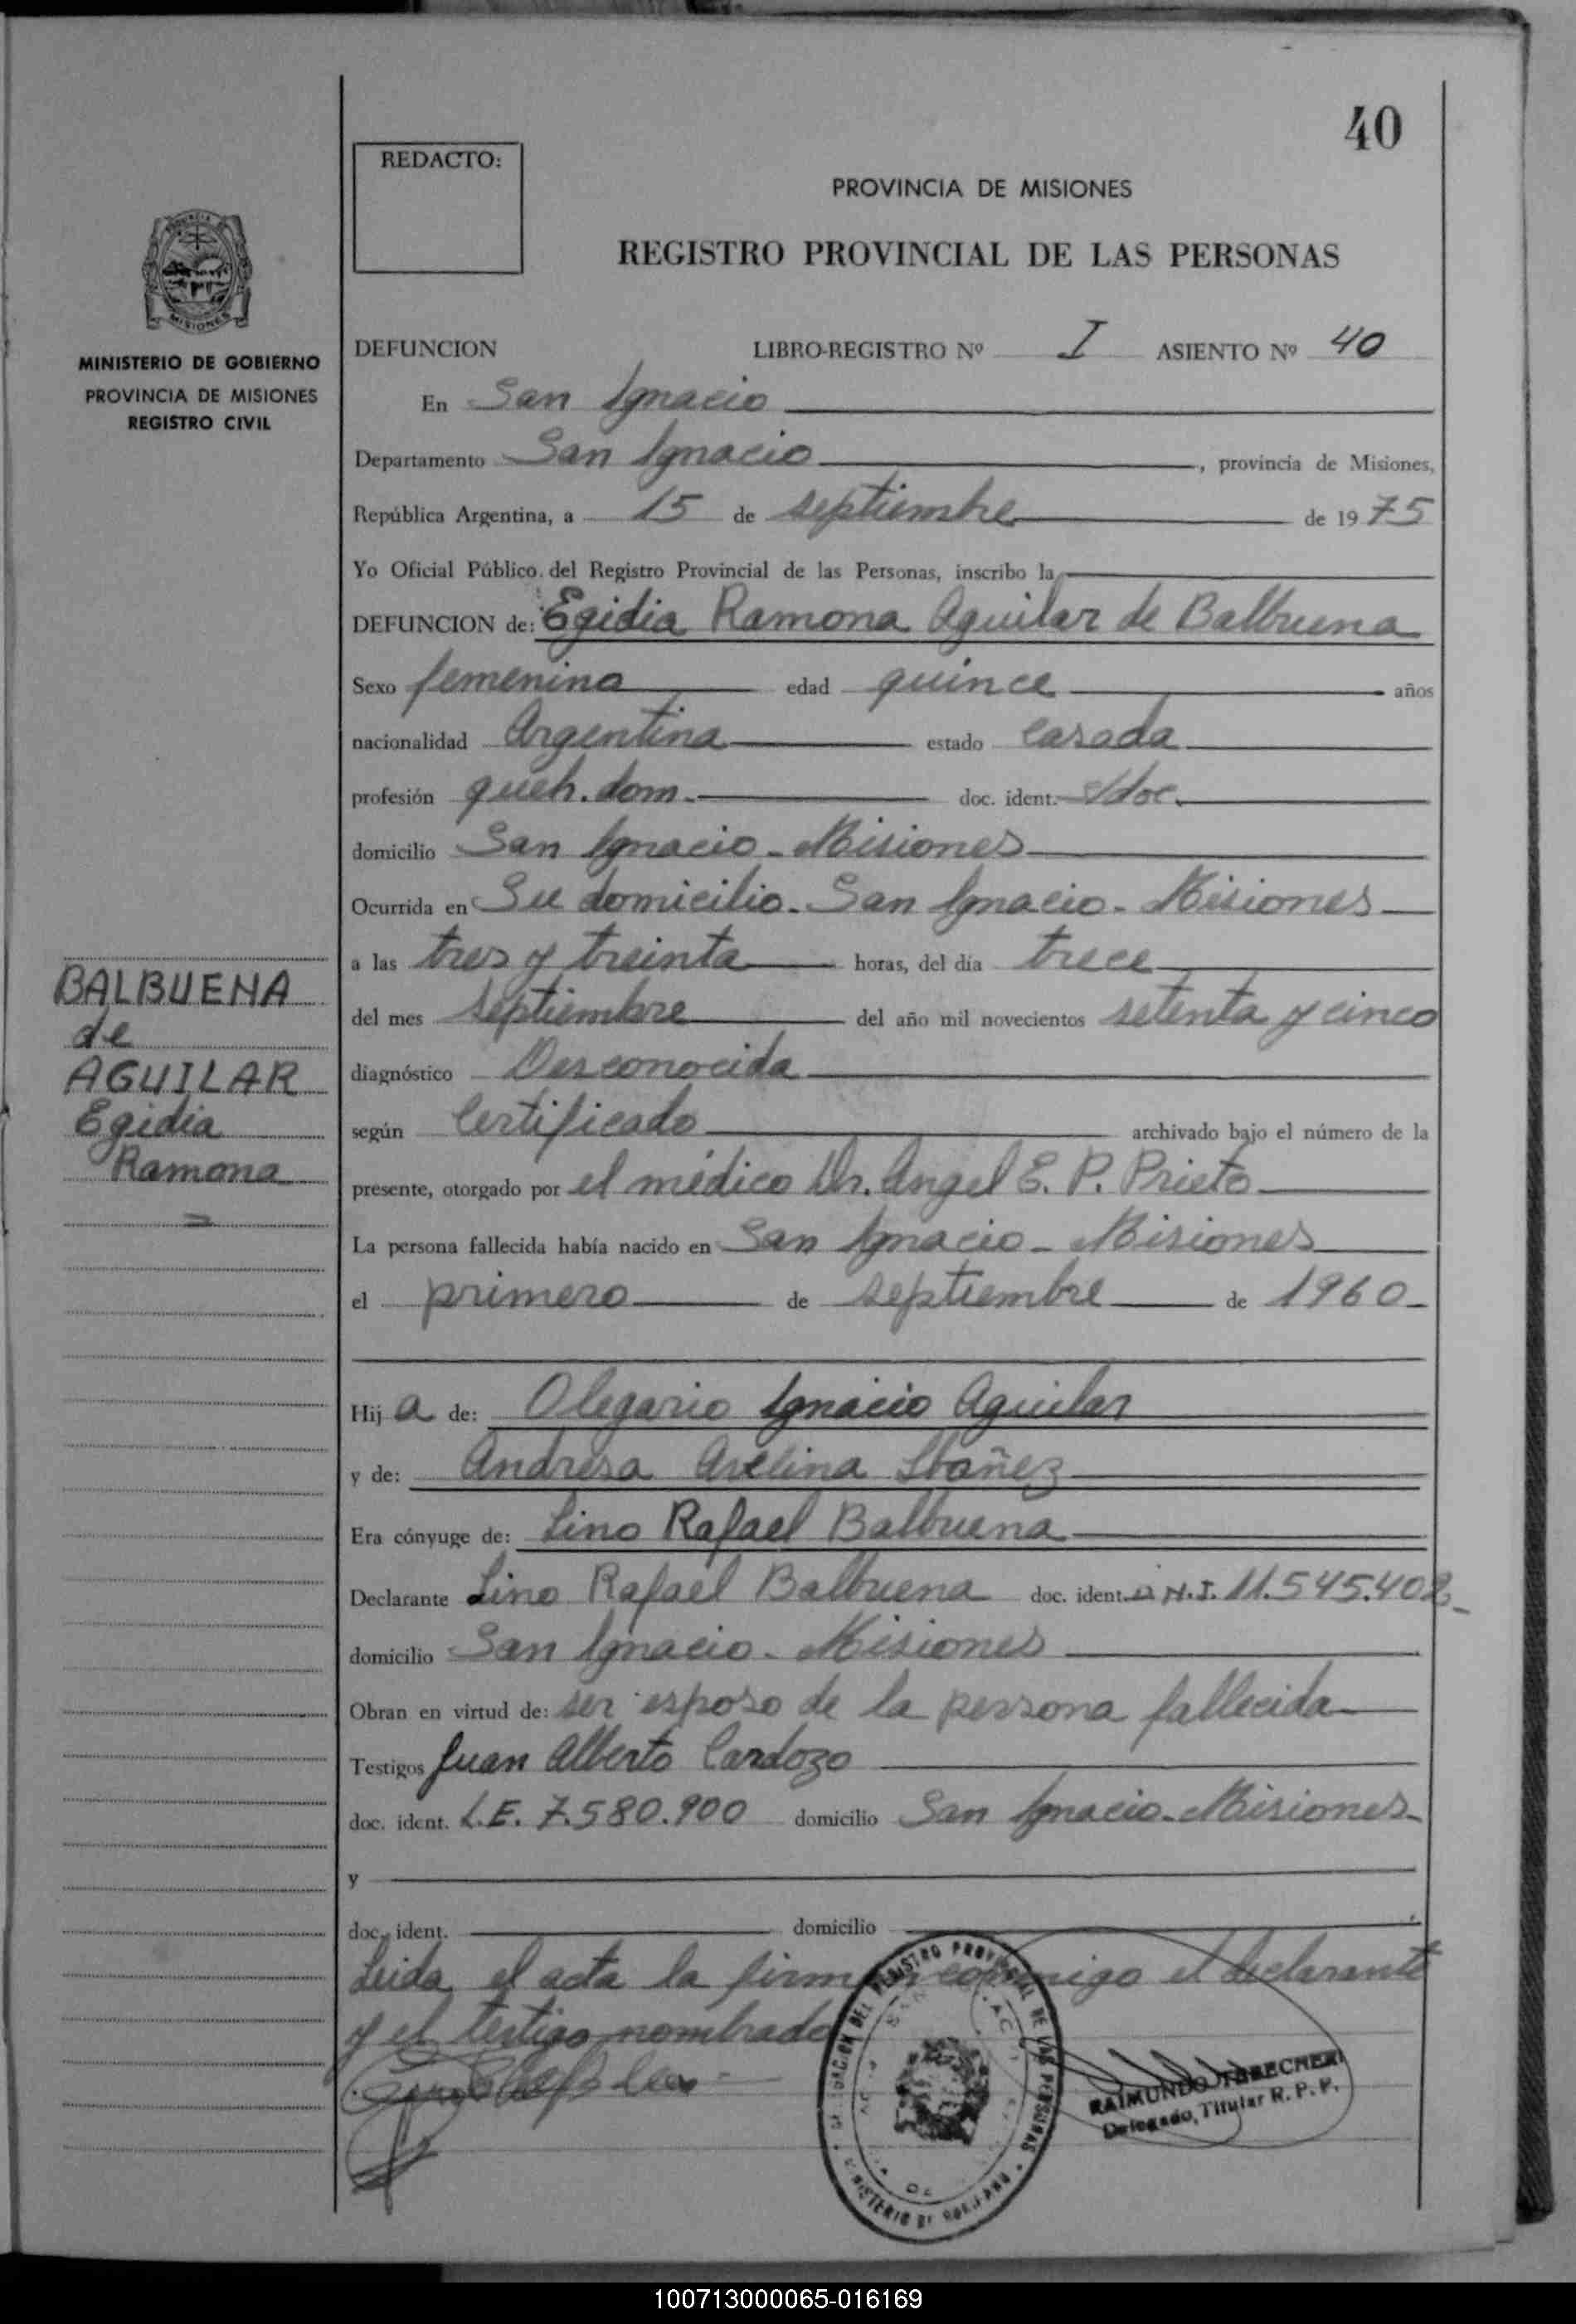 40
REDACTO:
PROVINCIA DE MISIONES
REGISTRO PROVINCIAL DE LAS PERSONAS
MISIONES
MINISTERIO DE GOBIERNO
PROVINCIA DE MISIONES
REGISTRO CIVIL
DEFUNCION LIBRO-REGISTRO Nº I ASIENTO Nº 40
En San Ignacio
Departamento San Ignacio, provincia de Misiones,
República Argentina, a 15 de septiembre de 1975
Yo Oficial Público del Registro Provincial de las Personas, inscribo la
DEFUNCION de: Egidia Ramona Aguilar de Balbuena
Sexo femenino edad quince años
nacionalidad Argentina estado casada
profesión queh. dom. doc. ident. s/doc.
domicilio San Ignacio - Misiones
Ocurrida en Su domicilio - San Ignacio - Misiones
a las tres y treinta horas, del día trece
del mes septiembre del año mil novecientos setenta y cinco
diagnóstico Desconocida
según Certificado archivado bajo el número de la
presente, otorgado por el médico Dr. Angel E. P. Prieto
La persona fallecida había nacido en San Ignacio - Misiones
el primero de septiembre de 1960
Hija de: Olegario Ignacio Aguilar
y de: Andresa Avelina Ibañez
Era cónyuge de: Lino Rafael Balbuena
Declarante Lino Rafael Balbuena doc. ident. D.N.I. 11.545.402
domicilio San Ignacio - Misiones
Obran en virtud de: ser esposo de la persona fallecida
Testigos Juan Alberto Cardozo
doc. ident. L.E. 7.580.900 domicilio San Ignacio - Misiones
y
doc. ident. domicilio
Leida el acta la firman conmigo el declarante
y el testigo nombrado
BALBUENA
de
AGUILAR
Egidia
Ramona
RAIMUNDO
Delegado Titular R. P. P.
100713000065-016169